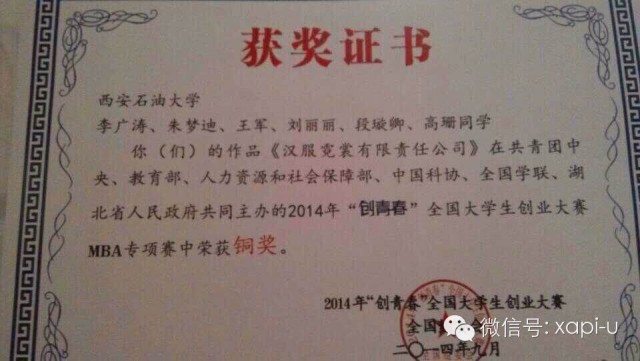 获奖证书
西安石油大学
李广涛、朱梦迪、王军、刘丽丽、段璇卿、高珊同学
你(们)的作品《汉服霓裳有限责任公司》在共青团中
央、教育部、人力资源和社会保障部、中国科协、全国学联、湖
北省人民政府共同主办的2014年“创青春”全国大学生创业大赛
MBA专项赛中荣获铜奖。
2014年“创青春”全国大学生创业大赛
全国
二〇一四年九月
微信号: xapi-u